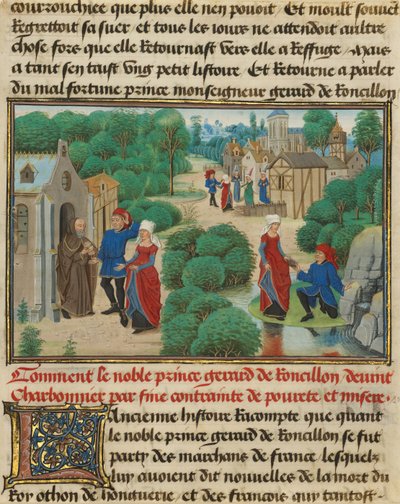 courzouchiee que plus elle nen pouoit Et moult souuēt
Regrettoit sa suer et tous les iours ne attendoit aultre
chose fors que elle Retournast vers elle a Reffuge Mais
a tant sen taist vng petit listoire Et Retourne a parler
du mal fortune prince monseigneur gerard de Roncillon
Comment le noble prince gerard de Roncillon deuint
Charbonnier par fine contrainte de pourete et misere
Lancienne histoire Racompte que quant
le noble prince gerard de Roncillon se fut
party des marchans de france lesquelz
luy auoient dit nouuelles de la mort du
Roy othon de honguerie et des francois qui tantost